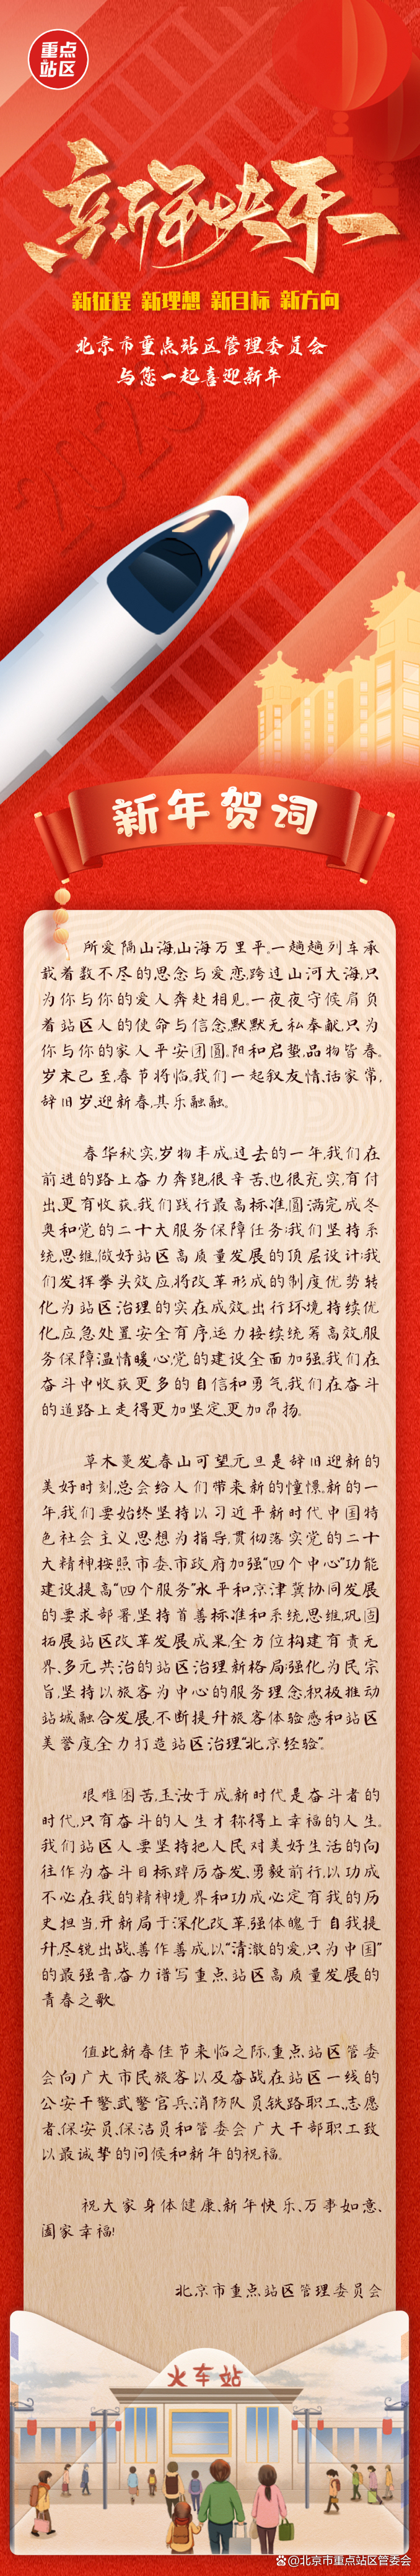 重点
站区
新年快乐
新征程 新理想 新目标 新方向
北京市重点站区管理委员会
与您一起喜迎新年
2023
新年贺词
所爱隔山海,山海万里平。一趟趟列车承
载着数不尽的思念与爱恋,跨过山河大海,只
为你与你的爱人奔赴相见。一夜夜守候肩负
着站区人的使命与信念,默默无私奉献,只为
你与你的家人平安团圆。阳和启蛰,品物皆春。
岁末已至,春节将临。我们一起叙友情、话家常,
辞旧岁、迎新春,其乐融融。
春华秋实,岁物丰成。过去的一年,我们在
前进的路上奋力奔跑,很辛苦、也很充实,有付
出、更有收获。我们践行最高标准,圆满完成冬
奥和党的二十大服务保障任务;我们坚持系
统思维,做好站区高质量发展的顶层设计;我
们发挥拳头效应,将改革形成的制度优势转
化为站区治理的实在成效。出行环境持续优
化,应急处置安全有序,运力接续统筹高效,服
务保障温情暖心,党的建设全面加强。我们在
奋斗中收获更多的自信和勇气,我们在奋斗
的道路上走得更加坚定、更加昂扬。
草木蔓发,春山可望。元旦是辞旧迎新的
美好时刻,总会给人们带来新的憧憬。新的一
年,我们要始终坚持以习近平新时代中国特
色社会主义思想为指导,贯彻落实党的二十
大精神,按照市委、市政府加强“四个中心”功能
建设、提高“四个服务”水平和京津冀协同发展
的要求部署,坚持首善标准和系统思维,巩固
拓展站区改革发展成果,全方位构建有责无
界、多元共治的站区治理新格局;强化为民宗
旨,坚持以旅客为中心的服务理念,积极推动
站城融合发展,不断提升旅客体验感和站区
美誉度,全力打造站区治理“北京经验”。
艰难困苦,玉汝于成。新时代是奋斗者的
时代,只有奋斗的人生才称得上幸福的人生。
我们站区人要坚持把人民对美好生活的向
往作为奋斗目标,踔厉奋发、勇毅前行,以功成
不必在我的精神境界和功成必定有我的历
史担当,开新局于深化改革,强体魄于自我提
升,尽锐出战、善作善成,以“清澈的爱,只为中国”
的最强音,奋力谱写重点站区高质量发展的
青春之歌。
值此新春佳节来临之际,重点站区管委
会向广大市民旅客以及奋战在站区一线的
公安干警、武警官兵、消防队员、铁路职工、志愿
者、保安员、保洁员和管委会广大干部职工致
以最诚挚的问候和新年的祝福。
祝大家身体健康、新年快乐、万事如意、
阖家幸福!
北京市重点站区管理委员会
火车站
@北京市重点站区管委会